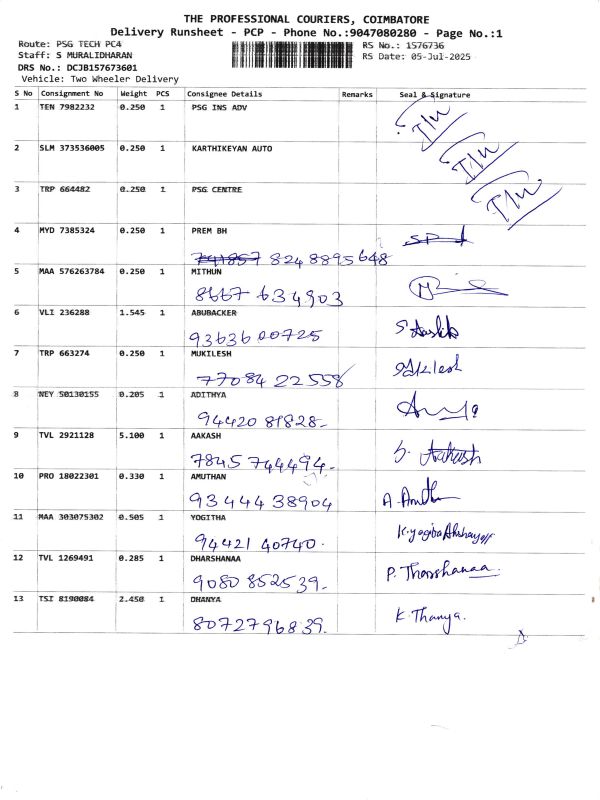 THE PROFESSIONAL COURIERS, COIMBATORE
Delivery Runsheet - PCP - Phone No.:9047080280 - Page No.:1
Route: PSG TECH PC4 RS No.: 1576736
Staff: S MURALIDHARAN RS Date: 05-Jul-2025
DRS No.: DCJB157673601
Vehicle: Two Wheeler Delivery
S No Consignment No Weight PCS Consignee Details Remarks Seal & Signature
1 TEN 7982232 0.250 1 PSG INS ADV
2 SLM 373536005 0.250 1 KARTHIKEYAN AUTO
3 TRP 664482 0.250 1 PSG CENTRE
4 MYD 7385324 0.250 1 PREM BH
8248895648
5 MAA 576263784 0.250 1 MITHUN
8667 634903
6 VLI 236288 1.545 1 ABUBACKER
9363600725
7 TRP 663274 0.250 1 MUKILESH
77084 22558
8 NEY 50130155 0.205 1 ADITHYA
94420 81828-
9 TVL 2921128 5.100 1 AAKASH S. Aakash
7845 744494-
10 PRO 18022301 0.330 1 AMUTHAN
93444 38904
11 MAA 303075302 0.505 1 YOGITHA
94421 40740.
12 TVL 1269491 0.285 1 DHARSHANAA P. Tharshanaa.
9080 852539-
13 TSI 8190084 2.450 1 DHANYA K. Thanya.
8072796839.